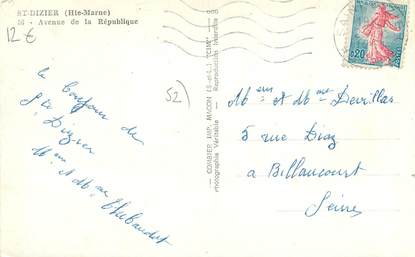 ST-DIZIER (Hte-Marne)
56 - Avenue de la République
12 €
52)
le bonjour de
St Dizier
Mr et Mme Thiebaudet
COMBIER IMP. MACON (S.-et-L.) "CIM"
Photographie Véritable - Reproduction Interdite
0,20
Mr et Mme Devillas
5 rue Diaz
a Billancourt
Seine